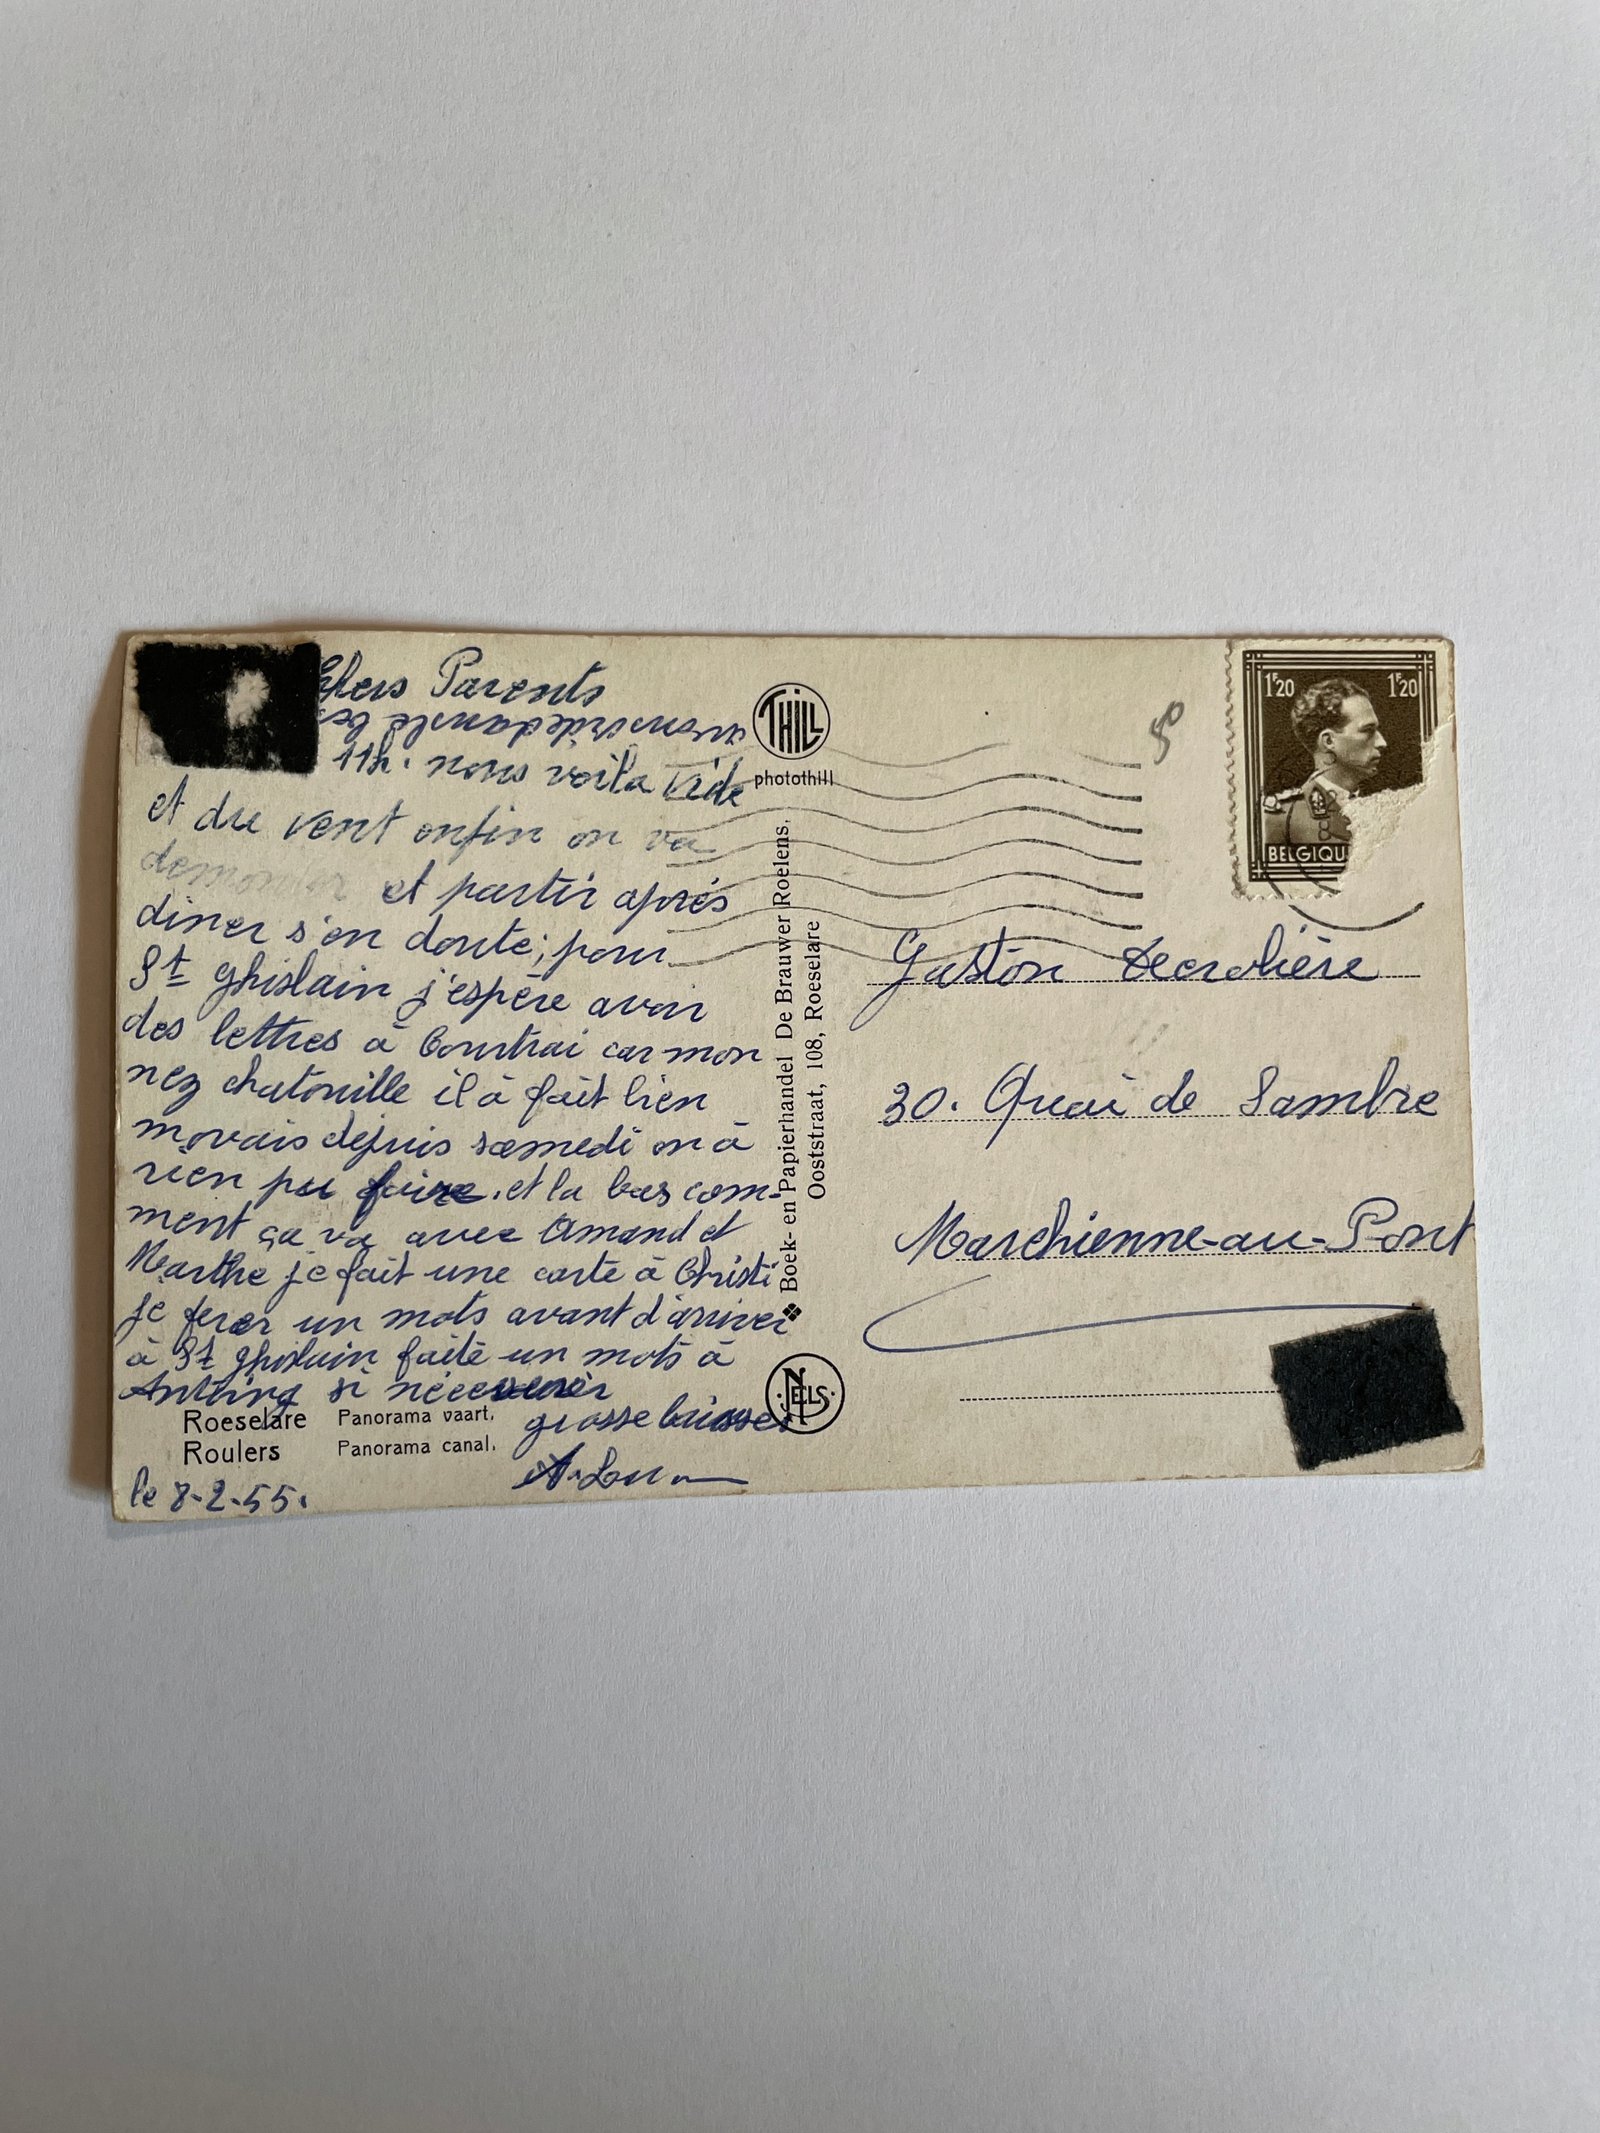 Chers Parents
11h. nous voila vide
et du vent enfin on va
et partir après
diner s'en doute; pour
St Ghislain j'espère avoir
des lettres à Courtrai car mon
nez chatouille il à fait bien
movais depuis samedi on à
rien pu faire. et la bas com-
ment ça va avec Amand et
Marthe je fait une carte à Christi
je ferer un mots avant d'ariver
à St Ghislain faite un mots à
si
grosse
le 8-2-55.
Roeselare Panorama vaart.
Roulers Panorama canal.
THILL
photothill
Boek- en Papierhandel De Brauwer Roelens,
Ooststraat, 108, Roeselare
NELS
50
1F20 1F20
BELGIQU
Gaston
30. Quai de Sambre
Marchienne-au-Pont